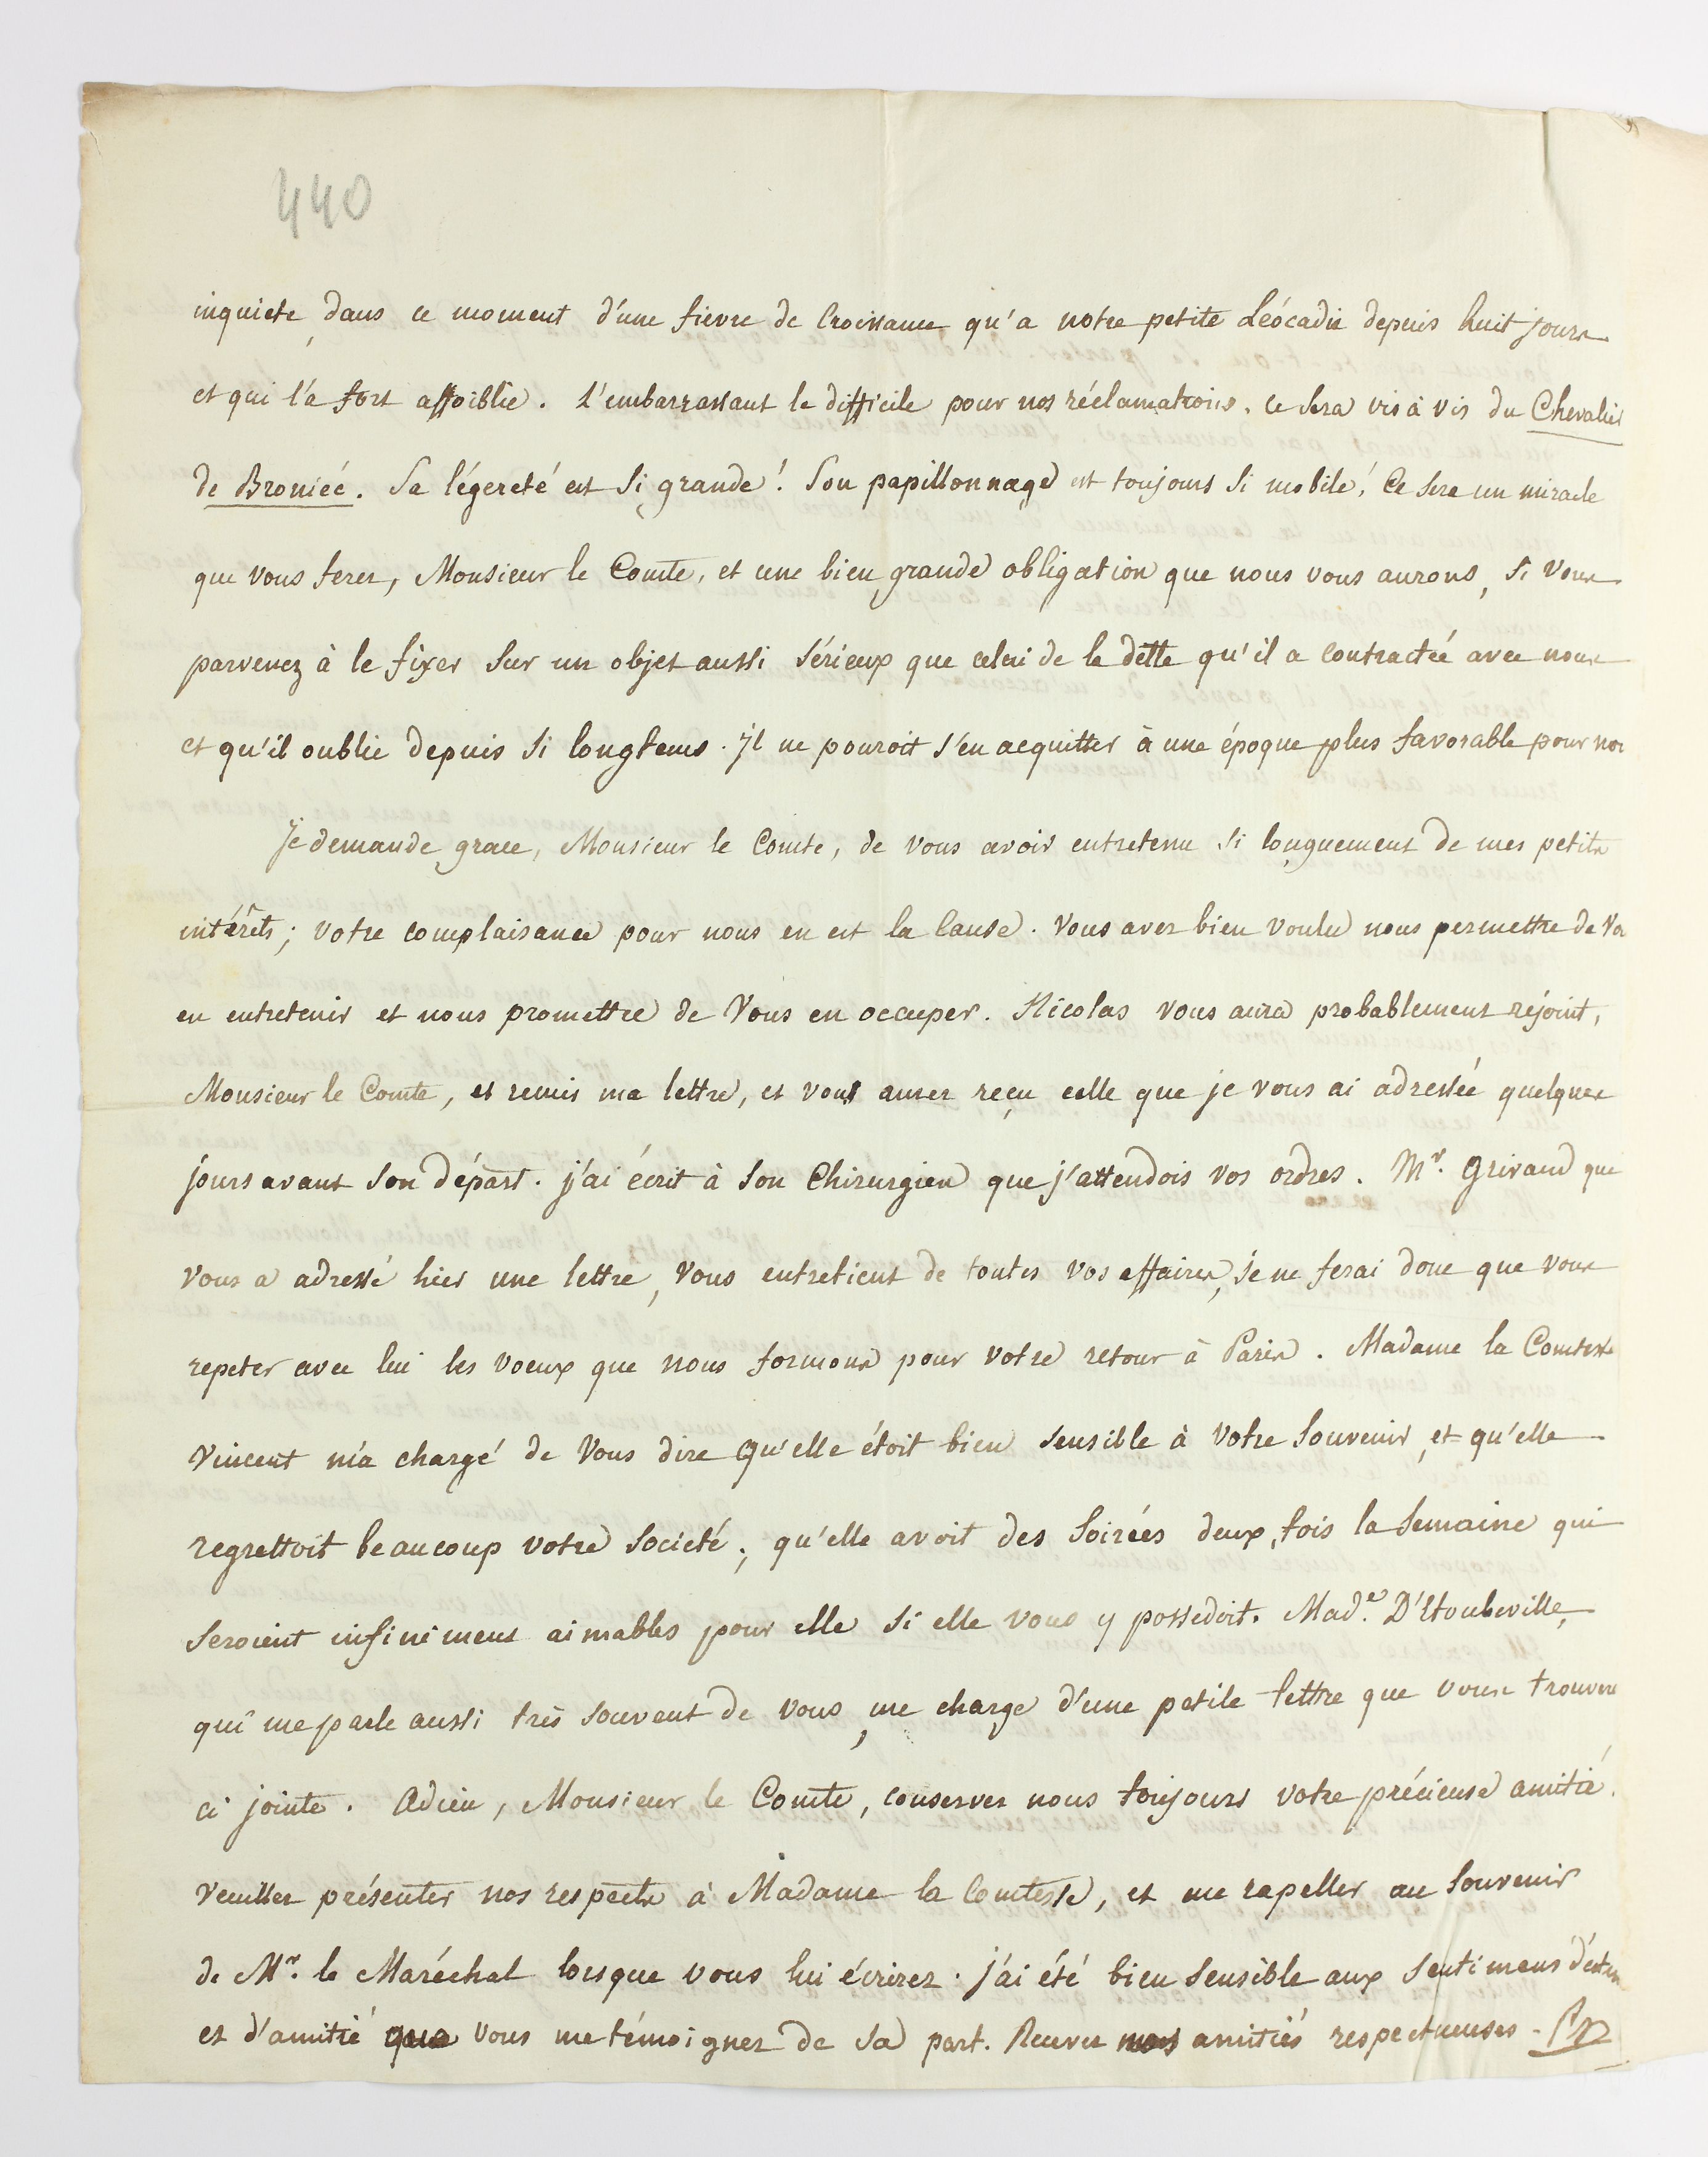 440
inquiete, dans ce moment d'une fievre de Croissance qu'a notre petite Léocadie depuis huit jours
et qui l'a fort affoiblie. L'embarrassant le difficile pour nos réclamations, ce sera vis à vis du Chevalier
de Broniéé. Sa légereté est si grande! Son papillonnage est toujours si mobile! Ce sera un miracle
que vous ferez, Monsieur le Comte, et une bien grande obligation que nous vous aurons, si vous
parvenez à le fixer sur un objet aussi sérieux que celui de la dette qu'il a contractée avec nous
et qu'il oublie depuis si longtems. Il ne pouroit s'en acquitter à une époque plus favorable pour nou
Je demande grace, Monsieur le Comte, de vous avoir entretenu si longuement de mes petits
intérêts; votre complaisance pour nous en est la cause. Vous avez bien voulu nous permettre de vou
en entretenir et nous promettre de vous en occuper. Nicolas vous aura probablement réjoint,
Monsieur le Comte, et remis ma lettre, et vous aurez reçu celle que je vous ai adressée quelques
jours avant son départ. j'ai écrit à son Chirurgien que j'attendois vos ordres. Mr. Grivaud qui
vous a adressé hier une lettre, vous entretient de toutes vos affaires, je ne ferai donc que vous
repeter avec lui les voeux que nous formons pour votre retour à Paris. Madame la Comtesse
Vincent m'a chargé de vous dire qu'elle étoit bien sensible à votre souvenir, et qu'elle
regrettoit beaucoup votre société; qu'elle avoit des soirées deux fois la semaine qui
seroient infiniment aimables pour elle si elle vous y possedoit. Made. D'Houbeville,
qui me parle aussi très souvent de vous, me charge d'une petite lettre que vous trouvere
ci jointe. Adieu, Monsieur le Comte, conservez nous toujours votre précieuse amitié.
Veuillez présenter nos respects à Madame la Comtesse, et me rapeller au souvenir
de Mr. le Maréchal lorsque vous lui écrirez. j'ai été bien sensible aux sentimens d'estim
et d'amitié que vous me témoignez de sa part. Recevez nos amitiés respectueuses.